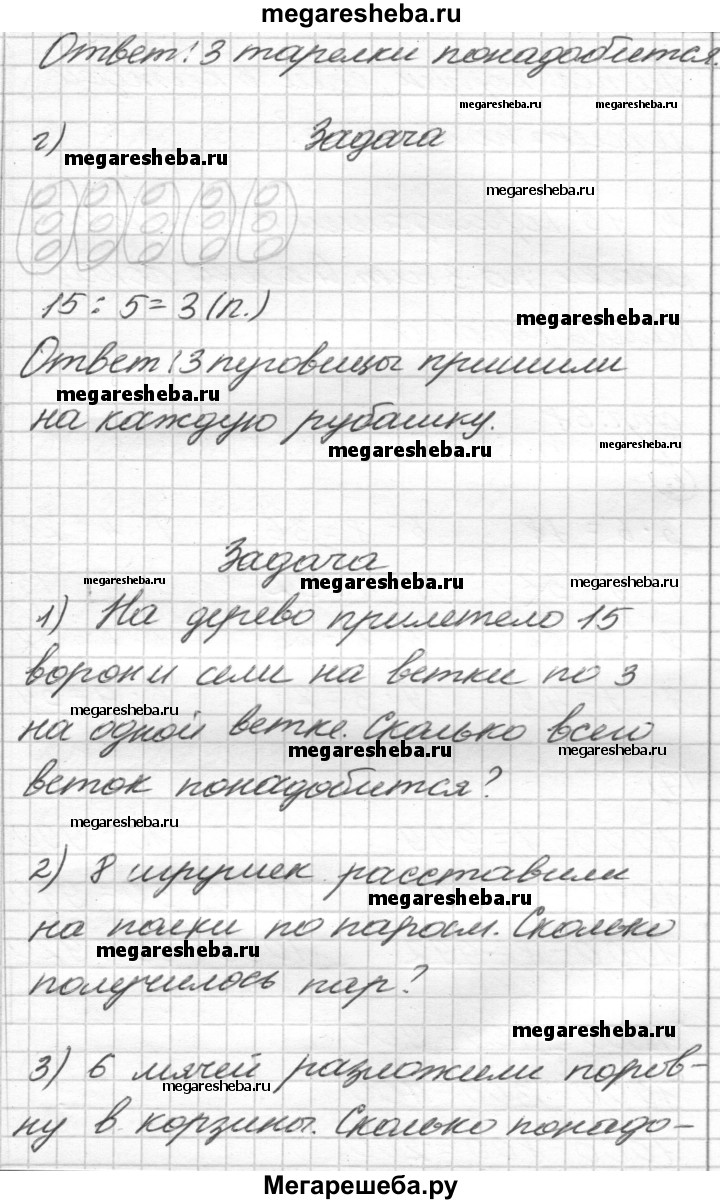 megaresheba.ru
Ответ: 3 тарелки понадобится.
megaresheba.ru megaresheba.ru
г) Задача
megaresheba.ru
megaresheba.ru
15 : 5 = 3 (п.)
megaresheba.ru
Ответ: 3 пуговицы пришили
megaresheba.ru
на каждую рубашку.
megaresheba.ru
megaresheba.ru
Задача
megaresheba.ru megaresheba.ru megaresheba.ru
1) На дерево прилетело 15
ворон и сели на ветки по 3
megaresheba.ru
на одной ветке. Сколько всего
megaresheba.ru megaresheba.ru
веток понадобится?
megaresheba.ru
2) 8 игрушек расставили
megaresheba.ru
на полки по парам. Сколько
megaresheba.ru
получилось пар?
megaresheba.ru
3) 6 мячей разложили поров-
megaresheba.ru
ну в корзины. Сколько понадо-
Мегарешеба.ру